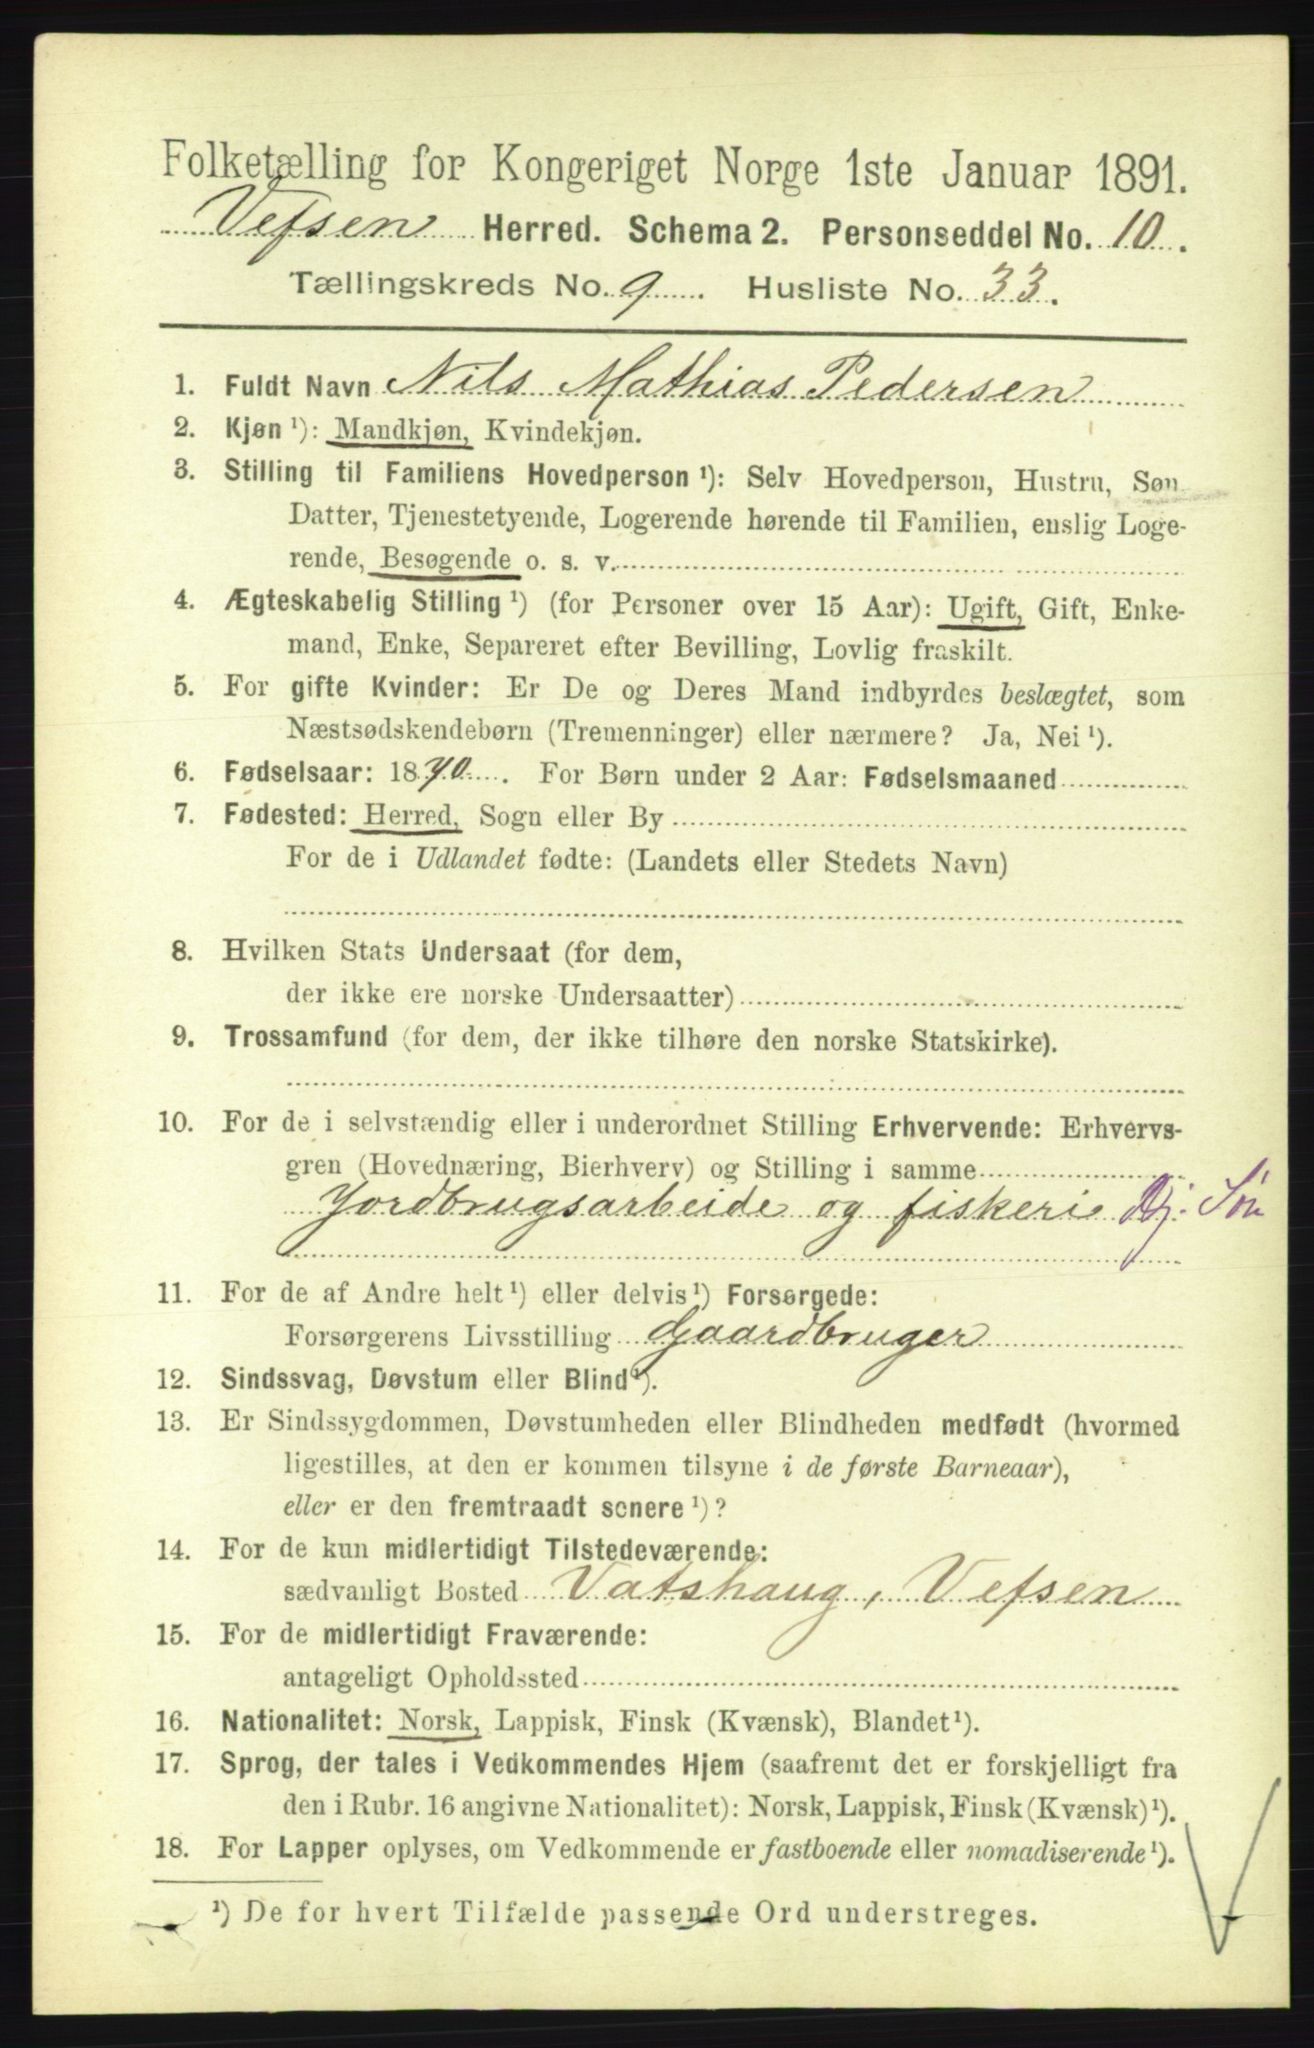 Folketælling for Kongeriget Norge 1ste Januar 1891.
Vefsen Herred. Schema 2. Personseddel No. 10.
Tællingskreds No. 9. Husliste No. 33.
1. Fuldt Navn Nils Mathias Pedersen
2. Kjøn ¹): Mandkjøn, Kvindekjøn.
3. Stilling til Familiens Hovedperson ¹): Selv Hovedperson, Hustru, Søn
Datter, Tjenestetyende, Logerende hørende til Familien, enslig Loge-
rende, Besøgende o. s. v.
4. Ægteskabelig Stilling ¹) (for Personer over 15 Aar): Ugift, Gift, Enke-
mand, Enke, Separeret efter Bevilling, Lovlig fraskilt.
5. For gifte Kvinder: Er De og Deres Mand indbyrdes beslægtet, som
Næstsødskendebørn (Tremenninger) eller nærmere? Ja, Nei ¹).
6. Fødselsaar: 1870. For Børn under 2 Aar: Fødselsmaaned
7. Fødested: Herred, Sogn eller By
For de i Udlandet fødte: (Landets eller Stedets Navn)
8. Hvilken Stats Undersaat (for dem,
der ikke ere norske Undersaatter)
9. Trossamfund (for dem, der ikke tilhøre den norske Statskirke).
10. For de i selvstændig eller i underordnet Stilling Erhvervende: Erhvervs-
gren (Hovednæring, Bierhverv) og Stilling i samme
Jordbrugsarbeide og fiskeri Søn
11. For de af Andre helt ¹) eller delvis ¹) Forsørgede:
Forsørgerens Livsstilling Gaardbruger
12. Sindssvag, Døvstum eller Blind ¹).
13. Er Sindssygdommen, Døvstumheden eller Blindheden medfødt (hvormed
ligestilles, at den er kommen tilsyne i de første Barneaar),
eller er den fremtraadt senere ¹)?
14. For de kun midlertidigt Tilstedeværende:
sædvanligt Bosted Vatshaug, Vefsen
15. For de midlertidigt Fraværende:
antageligt Opholdssted
16. Nationalitet: Norsk, Lappisk, Finsk (Kvænsk), Blandet ¹).
17. Sprog, der tales i Vedkommendes Hjem (saafremt det er forskjelligt fra
den i Rubr. 16 angivne Nationalitet): Norsk, Lappisk, Finsk (Kvænsk) ¹).
18. For Lapper oplyses, om Vedkommende er fastboende eller nomadiserende ¹).
¹) De for hvert Tilfælde passende Ord understreges.